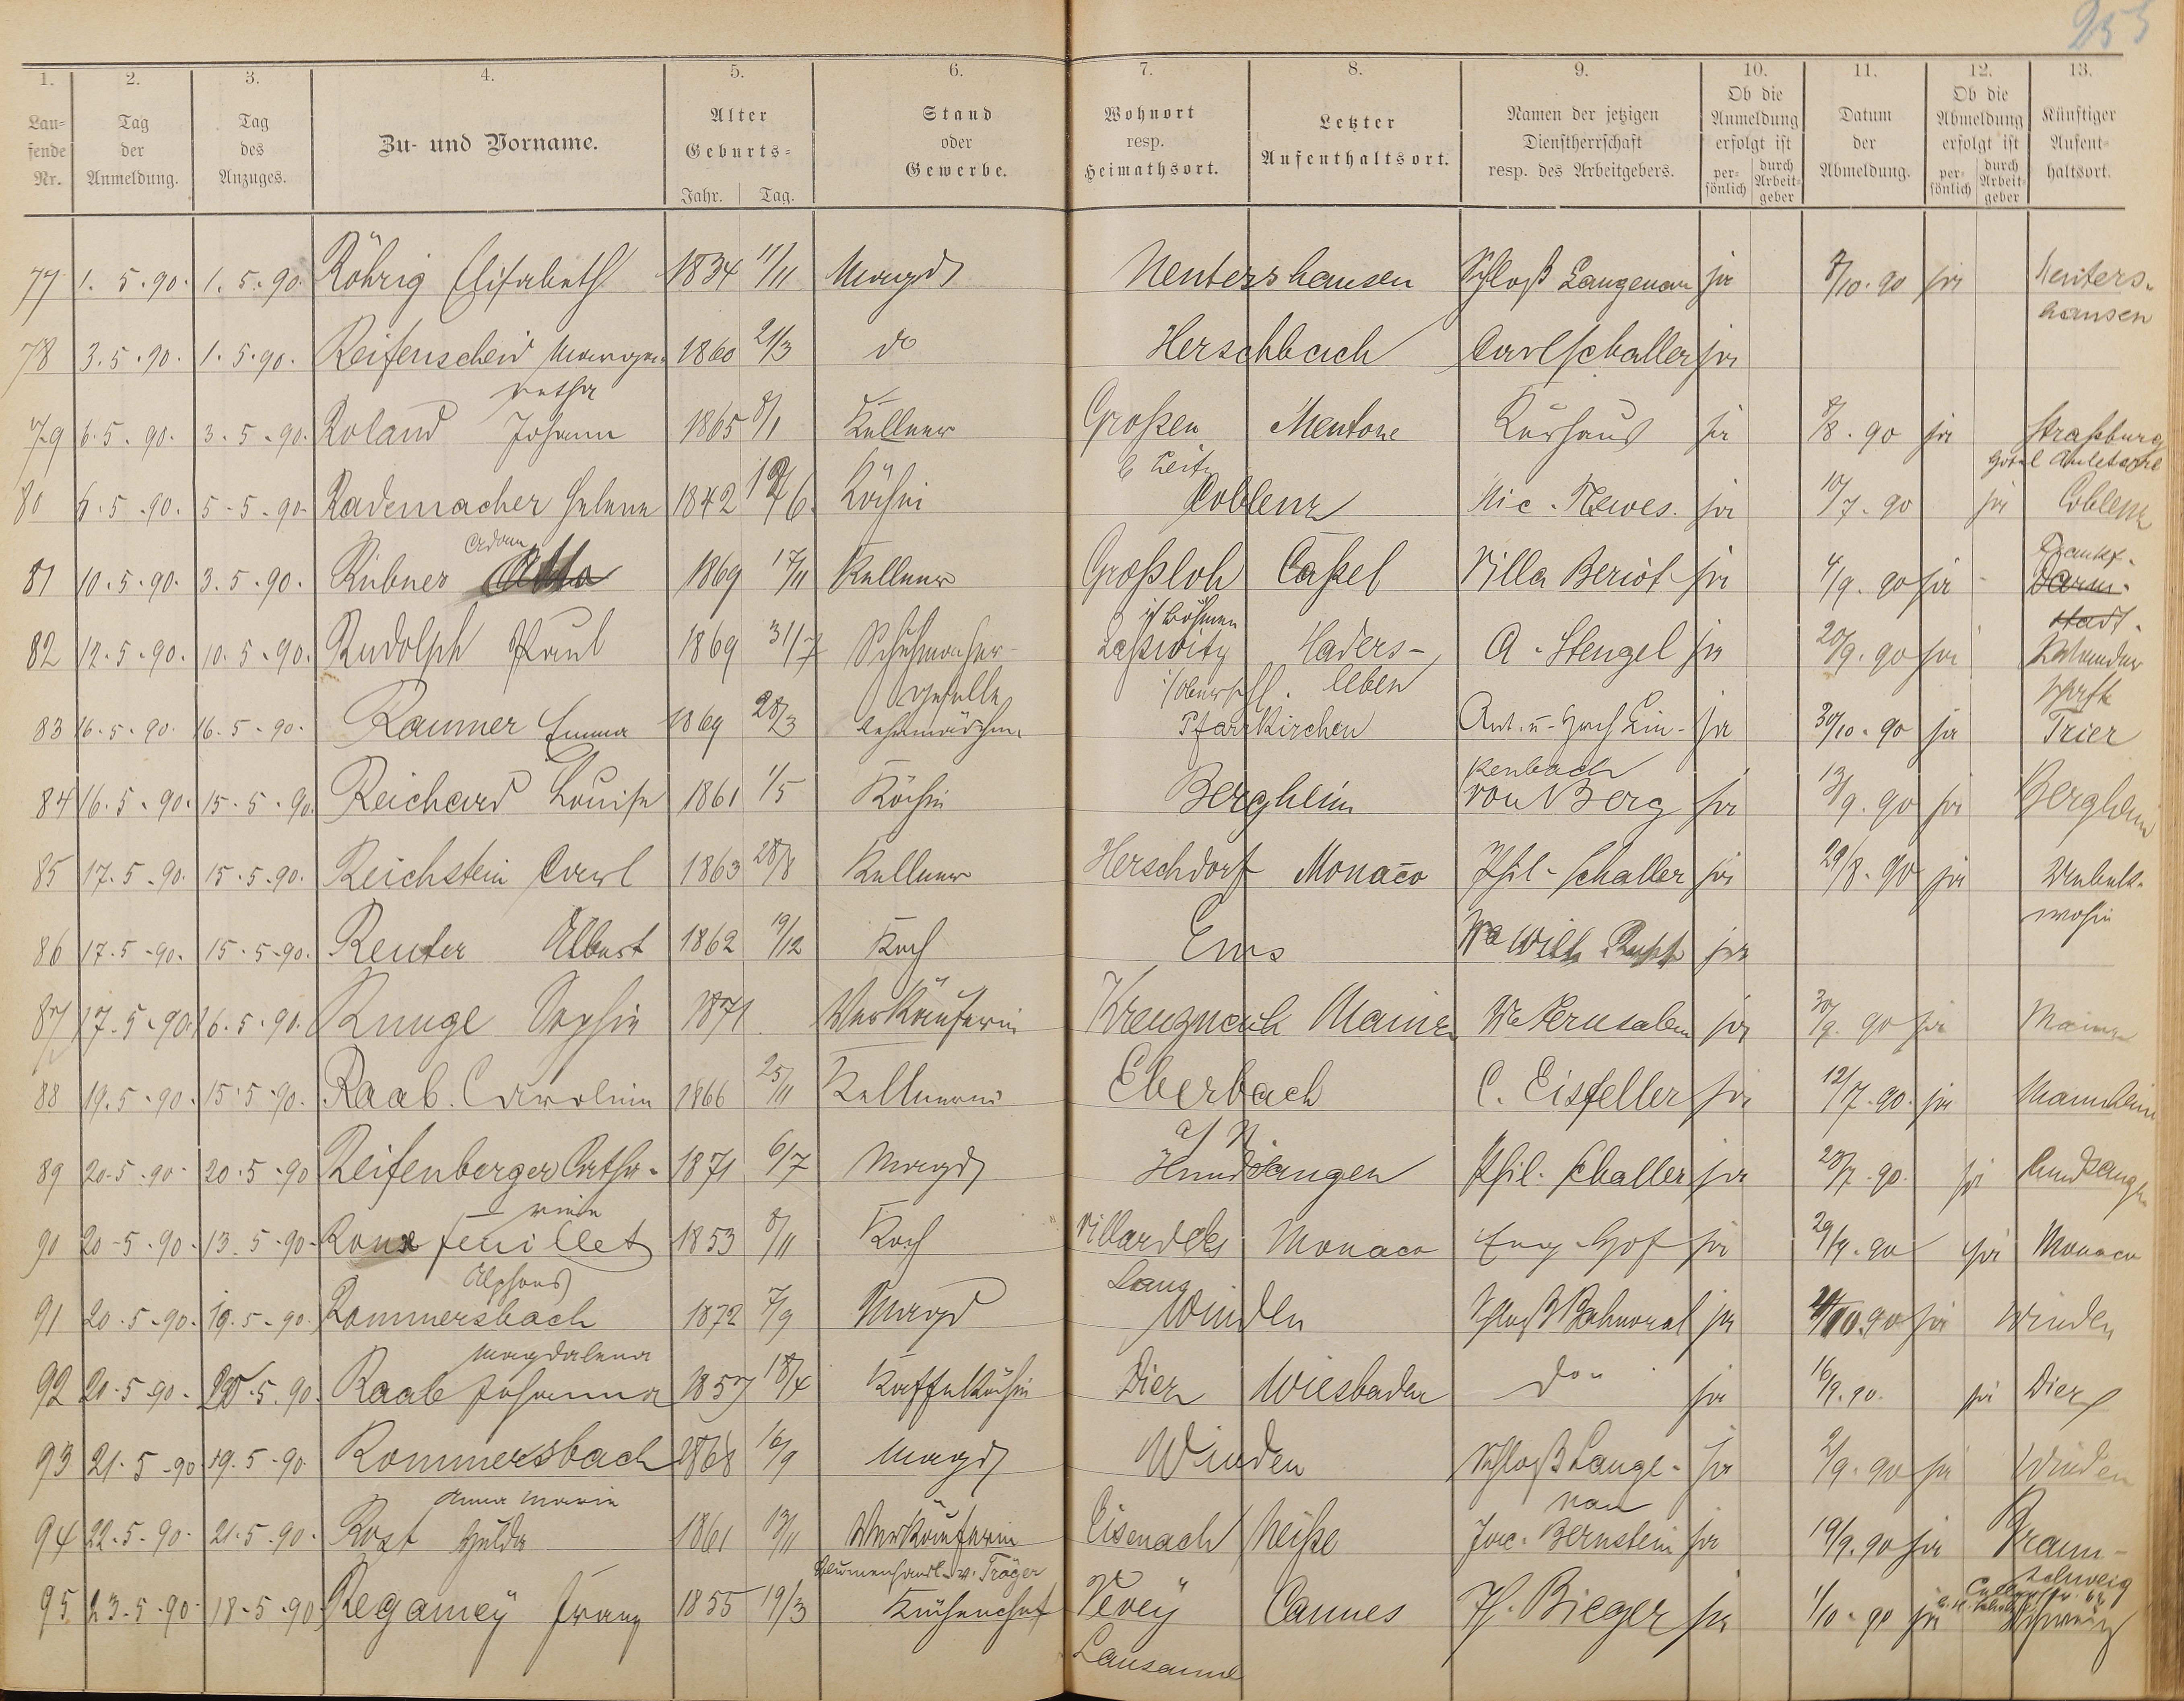 255
1. 2. 3. 4. 5. 6. 7. 8. 9. 10. 11. 12. 13.
Lau-
fende
Nr.
Tag
der
Anmeldung.
Tag
des
Anzuges.
Zu- und Vorname.
Alter
Geburts-
Jahr. Tag.
Stand
oder
Gewerbe.
Wohnort
resp.
Heimathsort.
Letzter
Aufenthaltsort.
Namen der jetzigen
Dienstherrschaft
resp. des Arbeitgebers.
Ob die
Anmeldung
erfolgt ist
per-
sönlich
durch
Arbeit-
geber
Datum
der
Abmeldung.
Ob die
Abmeldung
erfolgt ist
per-
sönlich
durch
Arbeit-
geber
Künftiger
Aufent-
haltsort.
77 1. 5. 90. 1. 5. 90. Röhrig Elisabeth 1834 11/11 Magd Nentershausen Schloß Langenau ja 8/10. 90 ja Nenters-
hausen
78 3. 5. 90. 1. 5. 90. Reifenscheid Marga- 1860 21/3 do Herschbach Carl Schaller ja
retha
79 6. 5. 90. 3. 5. 90. Roland Johann 1865 8/1 Kellner Großen Mentone Kurhaus ja 8/8. 90 ja Straßburg
80 6. 5. 90. 5. 5. 90. Rademacher Helene 1842 Köchin Coblenz Nic. Newes. ja 10/7. 90 ja Coblenz
Adam
81 10. 5. 90. 3. 5. 90. Rübner 1869 17/11 Kellner Großloh Caßel Villa Beriot ja 4/9. 90 ja Frankf.
Darm-
stadt.
i/ Böhmen
82 12. 5. 90. 10. 5. 90. Rudolph Paul 1869 31/7 Schuhmacher- Laßwitz Haders- A. Stengel ja 20/9. 90 ja
geselle leben
83 16. 5. 90. 16. 5. 90. Raumer Emma 1869 28/3 Lehrmädchen Pfarrkirchen Ant. u. Hrch Lin- ja 30/10. 90 ja Trier
kenbach
84 16. 5. 90. 15. 5. 90. Reichard Louise 1861 1/5 Köchin Bergheim von Berg ja 13/9. 90 ja Bergheim
85 17. 5. 90. 15. 5. 90. Reichstein Carl 1863 28/8 Kellner Herschdorf Monaco Phil. Schaller ja 29/8. 90 ja Unbek.
wohin
86 17. 5. 90. 15. 5. 90. Reuter Albert 1862 19/12 Koch Ems Wwe Wilh. ja
87 17. 5. 90. 16. 5. 90. Runge Sophie 1871 Verkäuferin Kreuznach Mainz We Jerusalem ja 30/9. 90 ja Mainz
88 19. 5. 90. 15. 5. 90. Raab Carolina 1866 25/11 Kellnerin Eberbach C. Eisfeller ja 12/7. 90. ja Mannheim
a/ N
89 20. 5. 90. 20. 5. 90 Reifenberger Catha- 1871 6/7 Magd Hundsangen Phil. Schaller ja 28/7. 90. ja Hundsangen
rina
90 20. 5. 90. 13. 5. 90. Roux feuillet 1853 8/11 Koch Villard de Monaco Eng. Hof ja 29/9. 90 ja Monaco
Alphons Lans
91 20. 5. 90. 19. 5. 90. Rommersbach 1872 7/9 Magd Winden Schloß Balmoral ja 10. 90 ja Winden
Magdalena
92 20. 5. 90. 20. 5. 90. Raab Johanna 1857 18/4 Kaffeköchin Diez Wiesbaden do ja 16/9. 90. ja Diez
93 21. 5. 90 19. 5. 90. Rommersbach 1868 16/9 Magd Winden Schloß Lange- ja 2/9. 90 ja Winden
Anna Maria nau
94 22. 5. 90. 21. 5. 90. Rost Hulda 1861 13/11 Verkäuferin Eisenach Neiße Jac. Bernstein ja 19/9. 90 ja Braun-
schweig
Blumenhandl. v. Träger
95 23. 5. 90. 18. 5. 90. Regamey Franz 1855 19/3 Küchenchef Vevey Cannes Ph. Bieger ja 1/10. 90 ja Schweiz
Lausanne